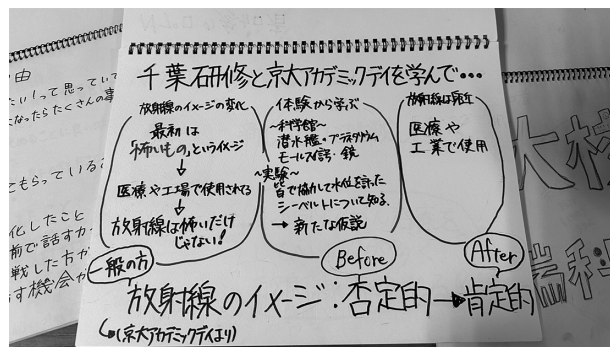 千葉研修と京大アカデミックデイを学んで…
放射線のイメージの変化
最初は
「怖いもの」というイメージ
↓
医療や工場で使用されてる
↓
放射線は怖いだけ
じゃない!
一般の方
体験から学ぶ
~科学館~
潜水艦・プラネタリウム
モールス信号・鏡
~実験~
皆で協力して水位を計った
シーベルトについて知る。
→ 新たな仮説
Before
放射線は身近
医療や
工業で使用
After
放射線のイメージ:否定的→肯定的
(京大アカデミックデイより)
由
たい!って思ってい
なったらたくさんの事
てもらっている
化したこと
前で話す力
戦した方が
す機会が
大